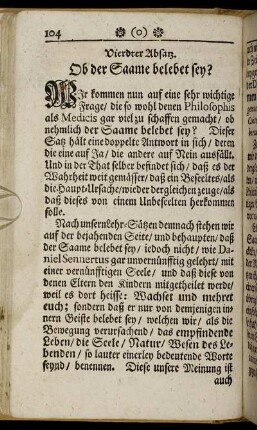 104 ❀ (o) ❀
Vierdter Absatz.
Ob der Saame belebet sey?
Wir kommen nun auf eine sehr wichtige
Frage/ die so wohl denen Philosophis
als Medicis gar viel zu schaffen gemacht/ ob
nehmlich der Saame belebet sey? Dieser
Satz hält eine doppelte Antwort in sich/ deren
die eine auf Ja/ die andre auf Nein ausfällt.
Und in der That selber befindet sich/ daß es der
Wahrheit weit gemässer/ daß ein Beseeltes/als
die Haupt-Ursache/wieder dergleichen zeuge/als
daß dieses von einem Unbeseelten herkommen
solle.
Nach unsern Lehr-Sätzen demnach stehen wir
auf der bejahenden Seite/ und behaupten/ daß
der Saame belebet sey/ iedoch nicht/ wie Da-
niel Sennertus gar unvernünfftig gelehret/ mit
einer vernünfftigen Seele/ und daß diese von
denen Eltern den Kindern mitgetheilet werde/
weil es dort heisse: Wachset und mehret
euch; sondern daß er nur von demjenigen in-
nern Geiste belebet sey/ welchen wir/ als die
Bewegung verursachend/ das empfindende
Leben/ die Seele/ Natur/ Wesen des Le-
benden/ so lauter einerley bedeutende Worte
seynd/ benennen. Diese unsere Meinung ist
auch